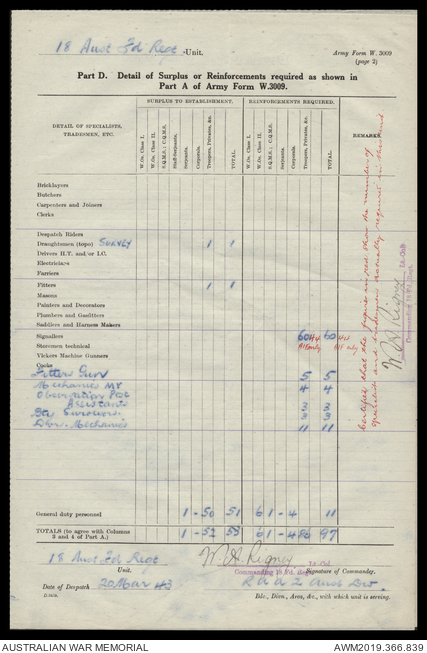 18 Aust Fd Regt -Unit.
Army Form W. 3009
(page 2)
Part D. Detail of Surplus or Reinforcements required as shown in
Part A of Army Form W.3009.
DETAIL OF SPECIALISTS, TRADESMEN, ETC.
SURPLUS TO ESTABLISHMENT.
REINFORCEMENTS REQUIRED.
REMARKS
W.Os. Class I. W.Os. Class II. S.Q.M.S.; C.Q.M.S. Staff-Sergeants. Sergeants. Corporals. Troopers, Privates, &c. TOTAL.
W.Os. Class I. W.Os. Class II. S.Q.M.S.; C.Q.M.S. Sergeants. Corporals. Troopers, Privates, &c. TOTAL.
Bricklayers
Butchers
Carpenters and Joiners
Clerks
Despatch Riders
Draughtsmen (topo) SURVEY 1 1
Drivers H.T. and/or I.C.
Electricians
Farriers
Fitters 1 1
Masons
Painters and Decorators
Plumbers and Gasfitters
Saddlers and Harness Makers
Signallers 60 60
Storemen technical
Vickers Machine Gunners
Cooks
Fitters Gun 5 5
Mechanics MV 4 4
Observation Post
Assistants 3 3
Bty Surveyors 3 3
Dvr. Mechanics 11 11
Certified that the figures in red show the number of
specialists and tradesmen actually required in
W A Rigney
Lt-Col
Commanding 18 Fd. Regt.
General duty personnel 1 - 50 51 6 1 - 4 11
TOTALS (to agree with Columns
3 and 4 of Part A.) 1 - 52 53 6 1 - 4 86 97
18 Aust Fd Regt
Unit.
W A Rigney Lt-Col
Commanding 18 Fd. Regt. Signature of Commander.
Date of Despatch 20 Mar 43
R A A 2 Aust Div.
Bde., Divn., Area, &c., with which unit is serving.
AUSTRALIAN WAR MEMORIAL
AWM2019.366.839